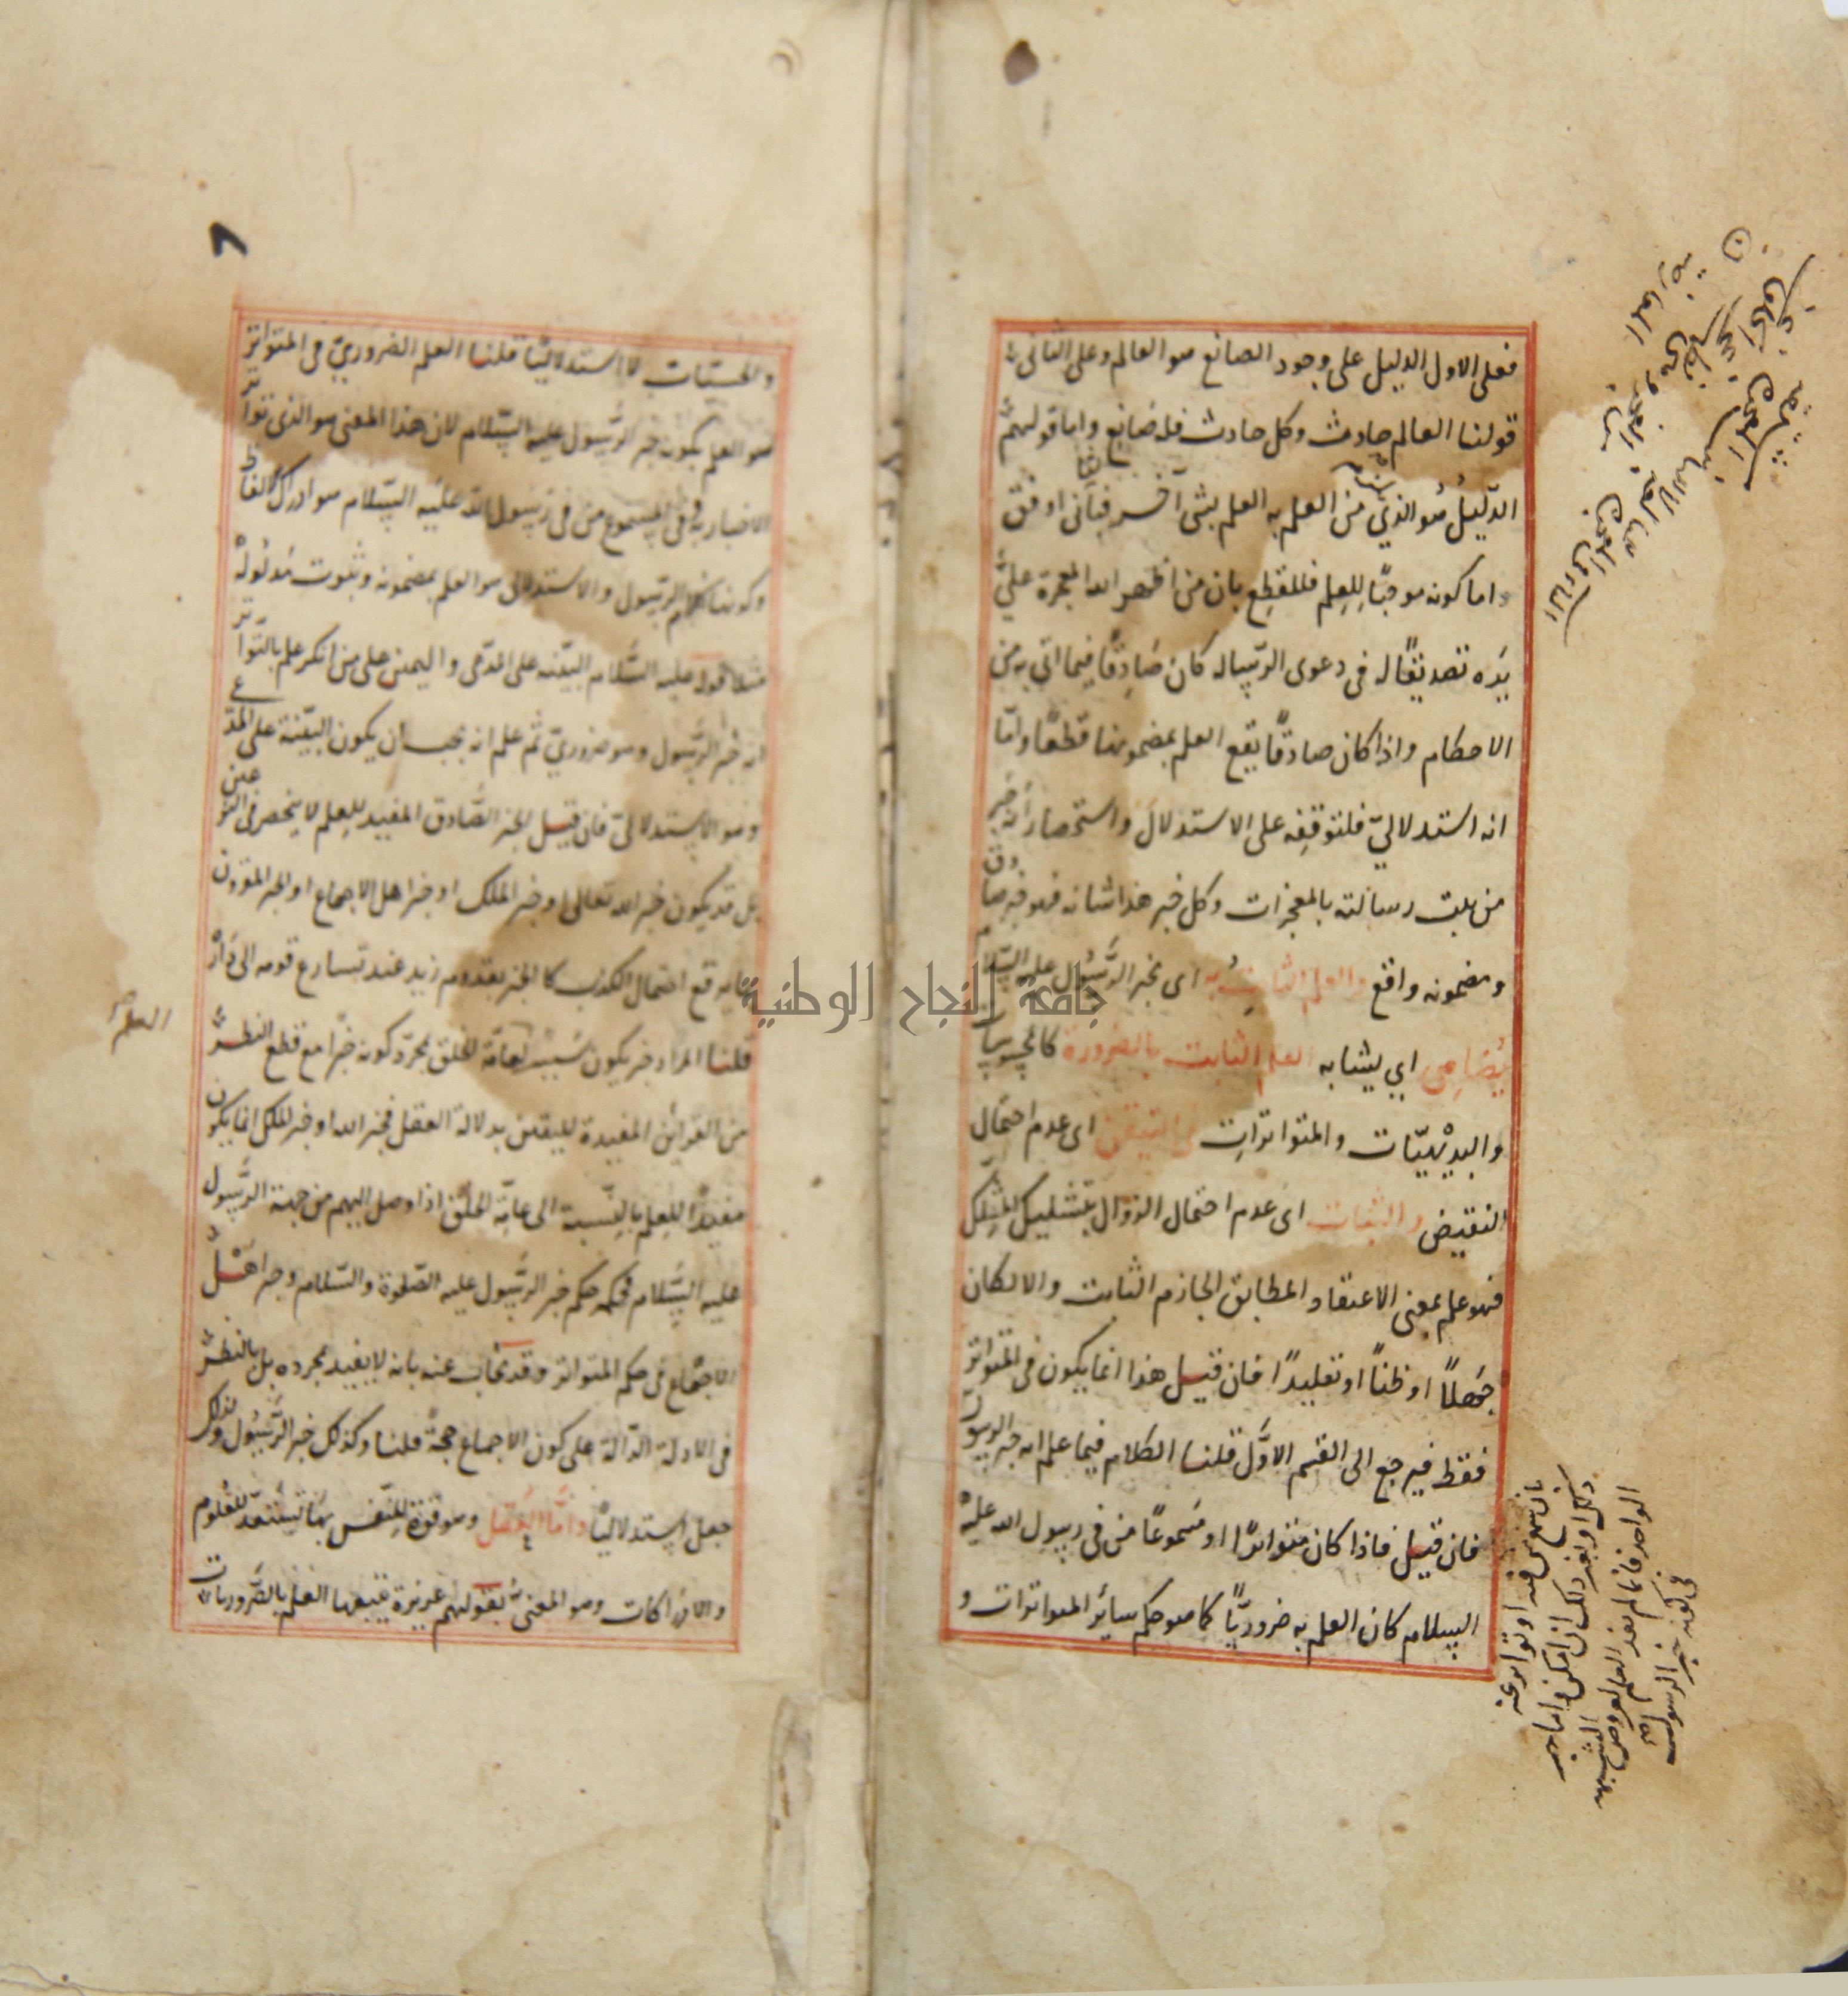 فعلى الاول الدليل على وجود الصانع هو العالم وعلى الثانى
قولنا العالم حادث وكل حادث فله صانع واما قولهم
الدليل هو الذي يلزم من العلم به العلم بشئ آخر فبالثانى اوفق
واما كونه موجبًا للعلم فللقطع بان من اظهر الله المعجزة على
يده تصديقًا له فى دعوى الرسالة كان صادقًا فيما اتى به من
الاحكام واذا كان صادقًا يقع العلم بمضمونها قطعًا واما
انه استدلالي فلتوقفه على الاستدلال واستحضار انه خبر
من ثبت رسالته بالمعجزات وكل خبر هذا شانه فهو خبر صادق
ومضمونه واقع والعلم الثابت به اى بخبر الرسول عليه السلام
يضاهى اي يشابه العلم الثابت بالضرورة كالمحسوسات
والبديهيّات والمتواترات فى التيقن اى عدم احتمال
النقيض والثبات اى عدم احتمال الزوال بتشكيك المشكك
فهو علم بمعنى الاعتقاد المطابق الجازم الثابت والا لكان
جهلاً او ظنًا او تقليدًا فان قيل هذا انما يكون فى المتواتر
فقط فيرجع الى القسم الاول قلنا الكلام فيما علم انه خبر الرسول
فان قيل فاذا كان متواترًا او مسموعًا من فى رسول الله عليه
السلام كان العلم به ضروريًا كما هو حكم سائر المتواترات و
بان سمع من فيه او تواتر عنه
ذلك او بغير ذلك ان امكن واما خبر
الواحد فانما لم يفد العلم لعروض الشبهة
فى كونه خبر الرسول
والحسيّات لا استدلاليًا قلنا العلم الضروري فى المتواتر
هو العلم بكون خبر الرسول عليه السلام لان هذا المعنى هو الذى تواتر
الاخبار به وفى المسموع من فى رسول الله عليه السلام هو ادراك الالفاظ
وكونها كلام الرسول والاستدلالى هو العلم بمضمونه وثبوت مدلوله
مثلا قوله عليه السلام البينة على المدعى واليمين على من انكر علم بالتواتر
انه خبر الرسول وهو ضروري ثم علم انه يجب ان يكون البينة على المدعى
وهو الاستدلالى فان قيل الخبر الصادق المفيد للعلم لا ينحصر فى النوعين
بل قد يكون خبر الله تعالى او خبر الملك او خبر اهل الاجماع او الخبر المقرون
بما يرفع احتمال الكذب كالخبر بقدوم زيد عند تسارع قومه الى داره
قلنا المراد خبر يكون سبب لعامة الخلق بمجرد كونه خبرًا مع قطع النظر
العلم
من القرائن المفيدة لليقين بدلالة العقل فخبر الله او خبر الملك انما يكون
مفيدًا للعلم بالنسبة الى عامة الخلق اذا وصل اليهم من جهة الرسول
عليه السلام فحكمه حكم خبر الرسول عليه الصلوة والسلام وخبر اهل
الاجماع فى حكم المتواتر وقد يجاب عنه بانه لا يفيد بمجرده بل بالنظر
فى الادلة الدالة على كون الاجماع حجة قلنا وكذلك خبر الرسول ولذلك
جعل استدلاليًا واما العقل وهو قوة للنفس بها تستعد للعلوم
والادراكات وهو المعنى بقولهم غريزة يتبعها العلم بالضروريات
جامعة النجاح الوطنية